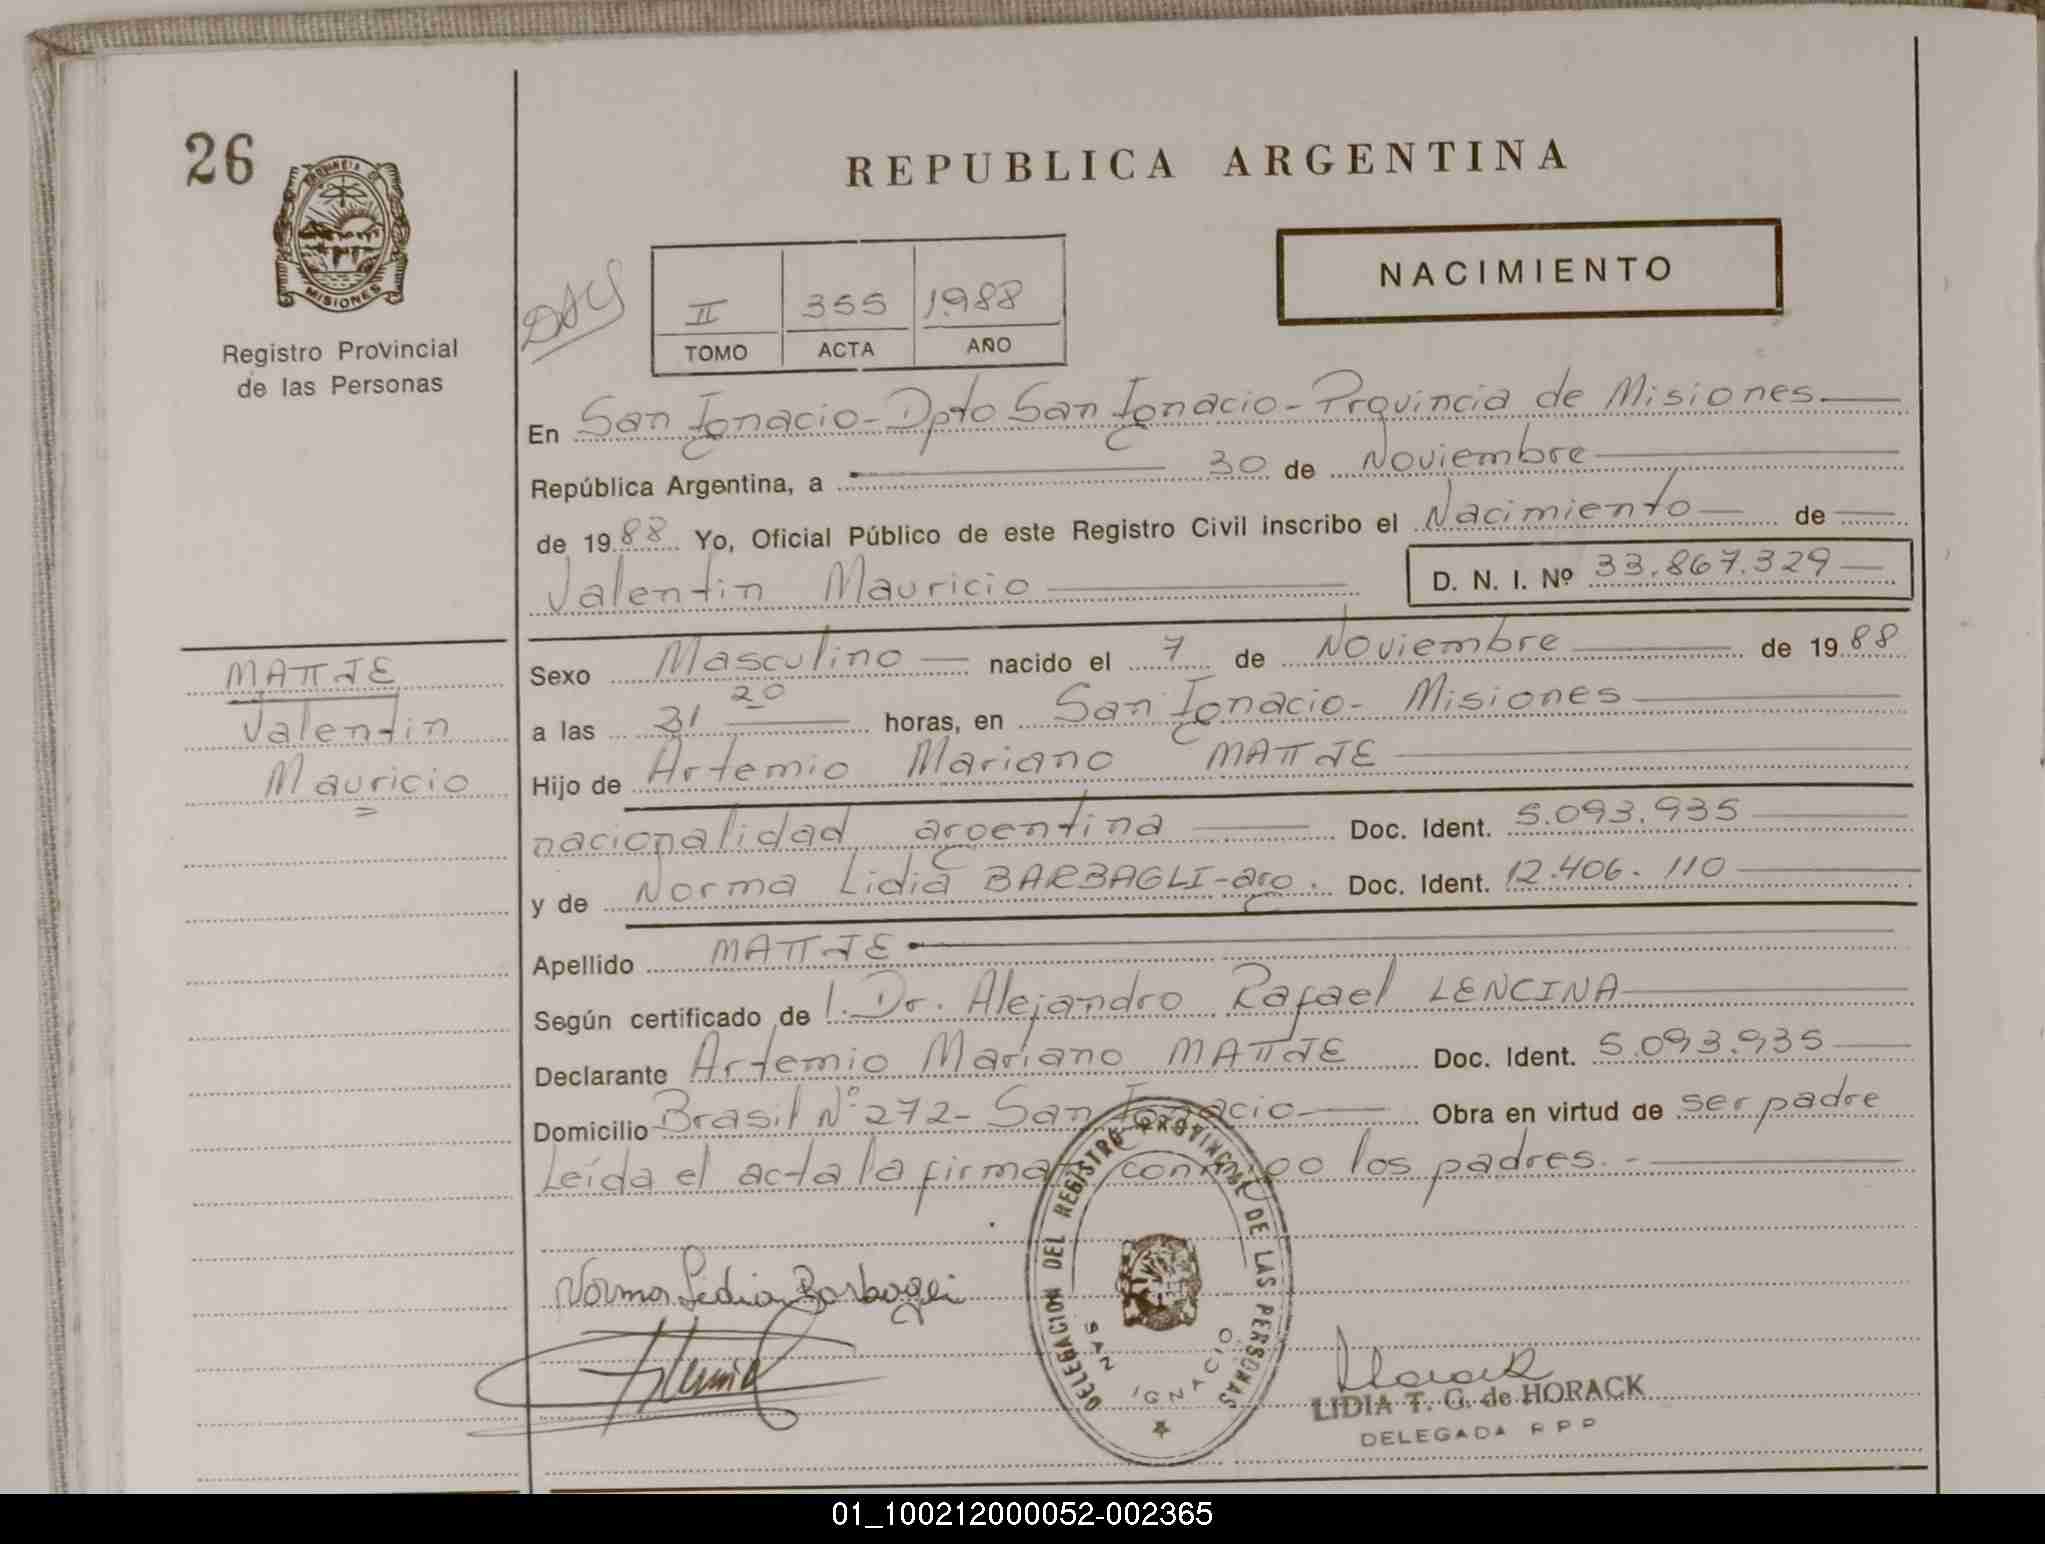 26
REPUBLICA ARGENTINA
PROVINCIA DE
MISIONES
NACIMIENTO
II 355 1.988
TOMO ACTA AÑO
Registro Provincial
de las Personas
En San Ignacio - Dpto San Ignacio - Provincia de Misiones.
República Argentina, a 30 de Noviembre
de 1988 Yo, Oficial Público de este Registro Civil inscribo el Nacimiento de
Valentin Mauricio D. N. I. Nº 33.867.329
MATTJE
Valentin
Mauricio
Sexo Masculino nacido el 7 de Noviembre de 1988
a las 21 20 horas, en San Ignacio - Misiones
Hijo de Artemio Mariano MATTJE
nacionalidad argentina Doc. Ident. 5.093.935
y de Norma Lidia BARBAGLI - arg. Doc. Ident. 12.406.110
Apellido MATTJE
Según certificado de l. Dr. Alejandro Rafael LENCINA
Declarante Artemio Mariano MATTJE Doc. Ident. 5.093.935
Domicilio Brasil Nº 272 - San Ignacio Obra en virtud de ser padre
Leída el acta la firman conmigo los padres. -
Norma Lidia Barbagli
DELEGACION DEL REGISTRO PROVINCIAL DE LAS PERSONAS
SAN IGNACIO
Horack
LIDIA T. G. de HORACK
DELEGADA R P P
01_100212000052-002365